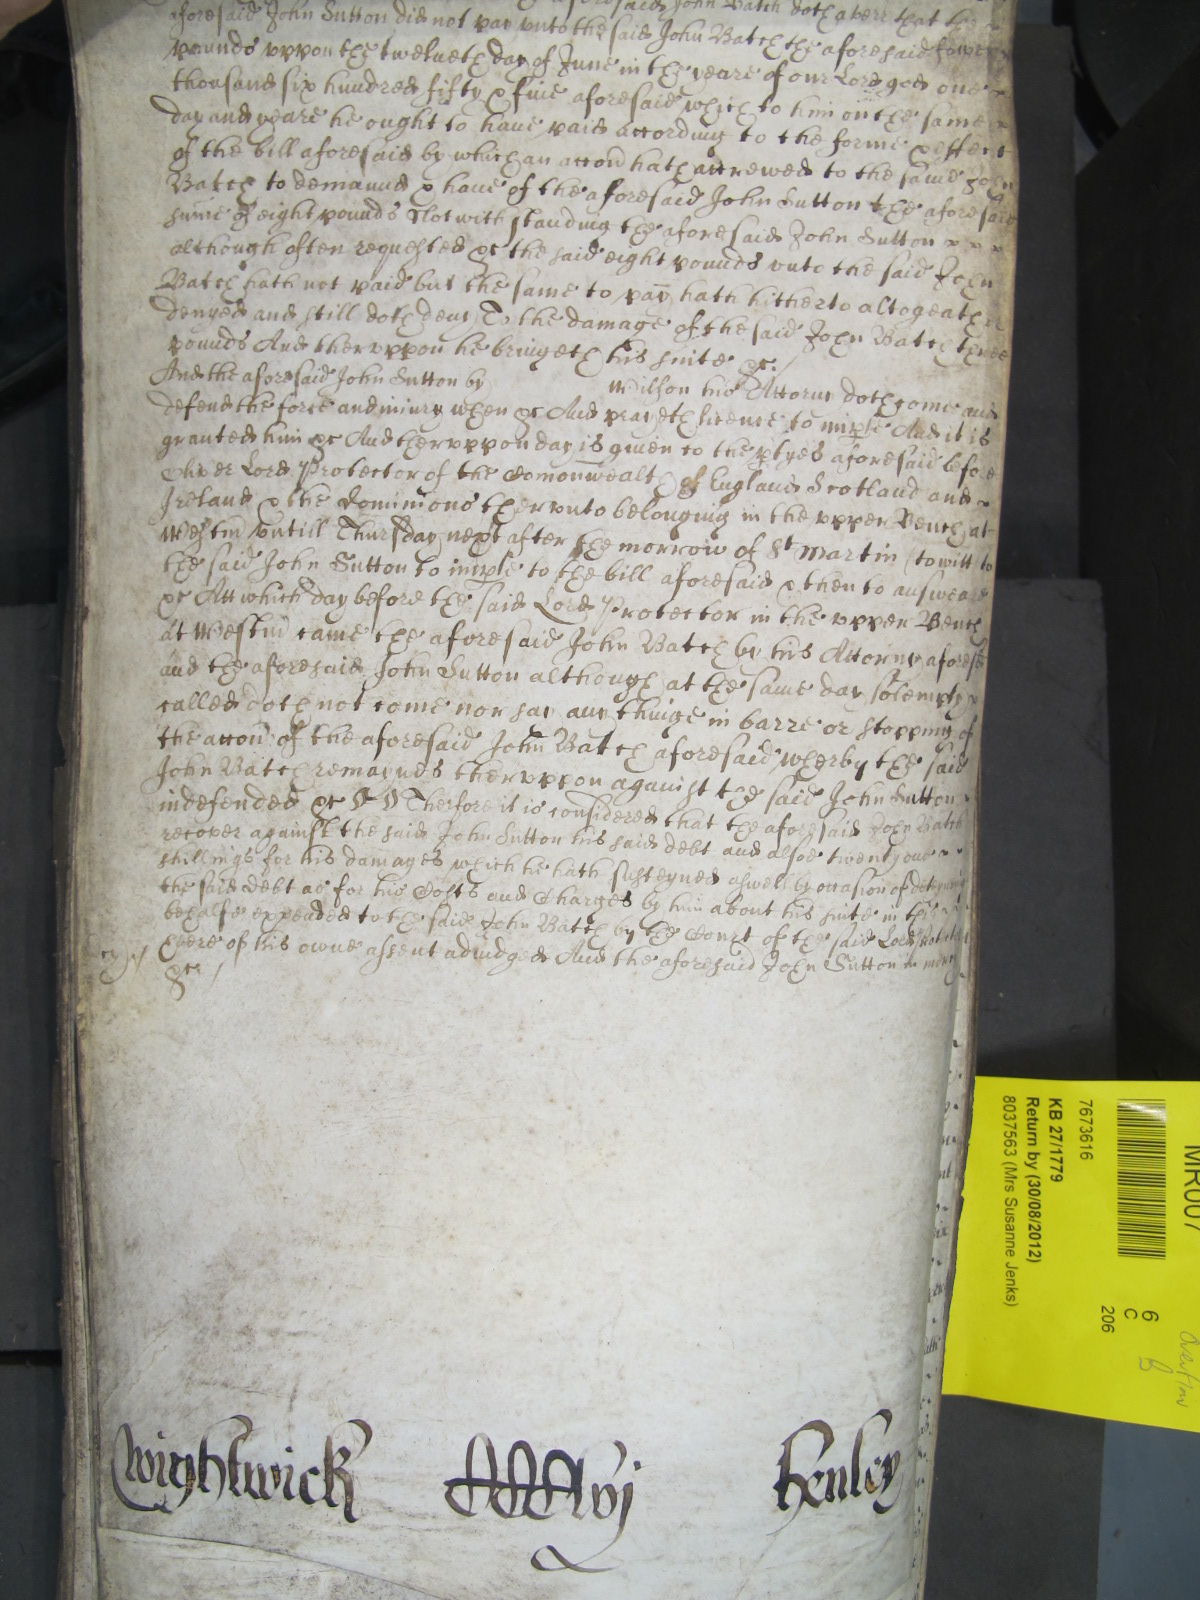 aforesaid John Batch doth averr that the
aforesaid John Sutton did not pay unto the said John Batch the aforesaid fower
pounds uppon the twelveth day of June in the yeare of our Lord god one
thousand six hundred fifty & five aforesaid which to him on the same
day and yeare he ought to have paid according to the forme & effect
of the bill aforesaid by which an accon hath accrewed to the same John
Batch to demaund & have of the aforesaid John Sutton the aforesaid
sume of eight pounds Notwithstanding the aforesaid John Sutton
although often requested &c the said eight pounds unto the said John
Batch hath not paid but the same to pay hath hitherto altogeather
denyed and still doth deny To the damage of the said John Batch three
pounds And theruppon he bringeth his suite &c.
And the aforesaid John Sutton by Wilson his Attorny doth come and
defend the force and iniury when &c And prayeth licence to imple And it is
granted him &c And theruppon day is given to the ptyes aforesaid before
Oliver Lord Protector of the Comonwealth of England Scotland and
Ireland & the dominions therunto belonging in the upper Bench at
Westm untill Thursday next after the morrow of St Martin (to witt) to
the said John Sutton to imple to the bill aforesaid & then to answeare
&c Att which day before the said Lord Protector in the upper Bench
at Westm came the aforesaid John Batch by his Attorny aforesd
and the aforesaid John Sutton although at the same day solemply
called doth not come nor say any thinge in barre or stopping of
the accon of the aforesaid John Batch aforesaid wherby the said
John Batch remaynes theruppon against the said John Sutton
indefended &c Therfore it is considered that the aforesaid John Batch
recover against the said John Sutton his said debt and alsoe twenty one
shillings for his damages which he hath susteyned aswell by occasion of deteyning
the said debt as for his Costs and Charges by him about his suite in this
behalfe expended to the said John Batch by the Court of the said Lord Protector
heere of his owne assent adiudged And the aforesaid John Sutton in mercy
&c
Wightwick vj Henley
MR007
7673616
KB 27/1779
Return by (30/08/2012)
8037563 (Mrs Susanne Jenks)
6
C
206
Overflow
B